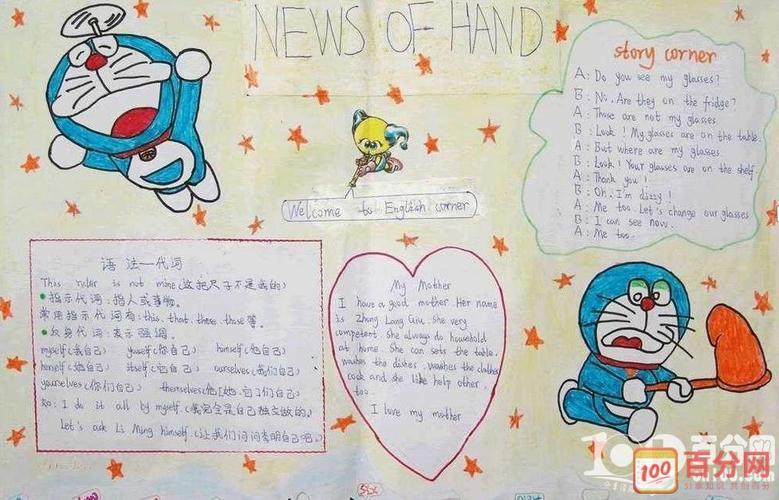 NEWS OF HAND
story corner
A: Do you see my glasses?
B: No. Are they on the fridge?
A: Those are not my glasses
B: Look! My glasses are on the table.
A: But where are my glasses
B: Look! Your glasses are on the shelf.
A: Thank you!
B: Oh, I'm dizzy!
A: Me too. Let's change our glasses
B: I can see now.
A: Me too.
Welcome to English corner
语法—代词
This ruler is not mine(这把尺子不是我的)
指示代词:指人或事物。
常用指示代词有:this、that、these、those等。
反身代词:表示强调。
myself(我自己) youself(你自己) himself(他自己)
herself(她自己) itself(它自己) ourselves(我们自己)
yourselves(你们自己) themselves(他[她、它]们自己)
如:I do it all by myself.(我完全是自己独立做的。)
Let's ask Li Ming himself.(让我们问问李明自己吧。)
My Mother
I have a good mother. Her name
is Zhang Lang Qiu. She very
competent. She always do household
at home. She can sets the table.
washes the dishes. washes the clothes
cook and she like help other,
too.
I love my mother
100
百分网
分享知识 共创百分